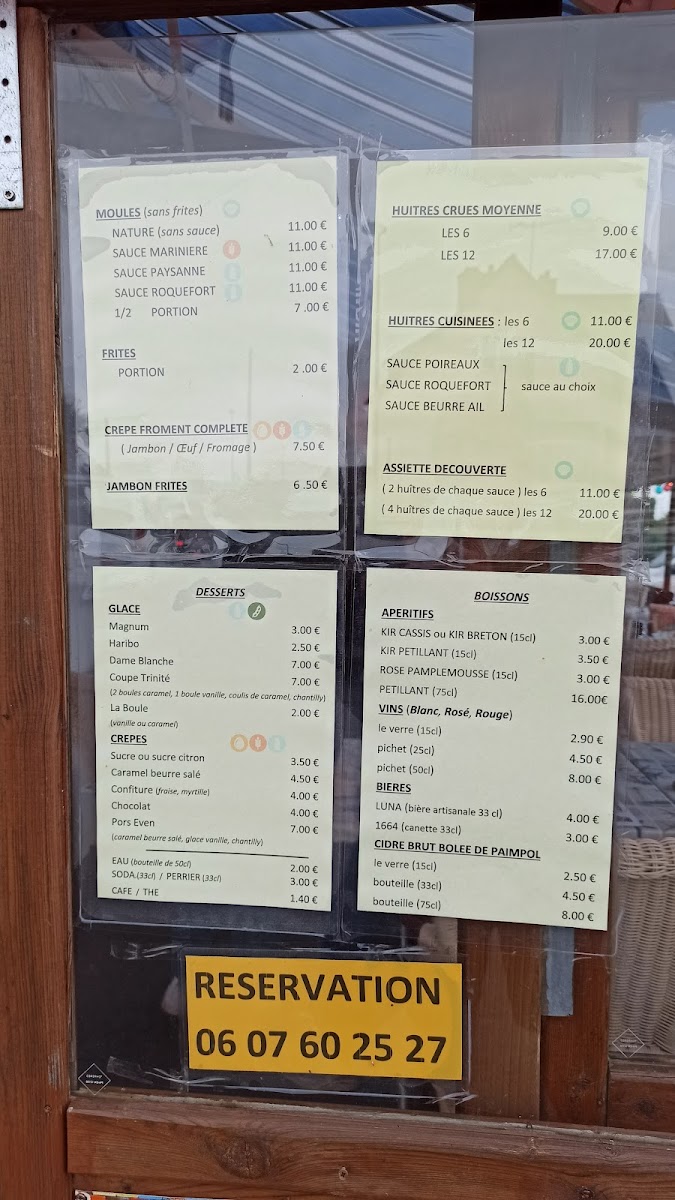 MOULES (sans frites)
NATURE (sans sauce) 11.00 €
SAUCE MARINIERE 11.00 €
SAUCE PAYSANNE 11.00 €
SAUCE ROQUEFORT 11.00 €
1/2 PORTION 7 .00 €
FRITES
PORTION 2 .00 €
CREPE FROMENT COMPLETE
( Jambon / Œuf / Fromage ) 7.50 €
JAMBON FRITES 6 .50 €
HUITRES CRUES MOYENNE
LES 6 9.00 €
LES 12 17.00 €
HUITRES CUISINEES : les 6 11.00 €
les 12 20.00 €
SAUCE POIREAUX
SAUCE ROQUEFORT sauce au choix
SAUCE BEURRE AIL
ASSIETTE DECOUVERTE
( 2 huîtres de chaque sauce ) les 6 11.00 €
( 4 huîtres de chaque sauce ) les 12 20.00 €
DESSERTS
GLACE
Magnum 3.00 €
Haribo 2.50 €
Dame Blanche 7.00 €
Coupe Trinité 7.00 €
(2 boules caramel, 1 boule vanille, coulis de caramel, chantilly)
La Boule 2.00 €
(vanille ou caramel)
CREPES
Sucre ou sucre citron 3.50 €
Caramel beurre salé 4.50 €
Confiture (fraise, myrtille) 4.00 €
Chocolat 4.00 €
Pors Even 7.00 €
(caramel beurre salé, glace vanille, chantilly)
EAU (bouteille de 50cl) 2.00 €
SODA.(33cl) / PERRIER (33cl) 3.00 €
CAFE / THE 1.40 €
BOISSONS
APERITIFS
KIR CASSIS ou KIR BRETON (15cl) 3.00 €
KIR PETILLANT (15cl) 3.50 €
ROSE PAMPLEMOUSSE (15cl) 3.00 €
PETILLANT (75cl) 16.00€
VINS (Blanc, Rosé, Rouge)
le verre (15cl) 2.90 €
pichet (25cl) 4.50 €
pichet (50cl) 8.00 €
BIERES
LUNA (bière artisanale 33 cl) 4.00 €
1664 (canette 33cl) 3.00 €
CIDRE BRUT BOLEE DE PAIMPOL
le verre (15cl) 2.50 €
bouteille (33cl) 4.50 €
bouteille (75cl) 8.00 €
RESERVATION
06 07 60 25 27